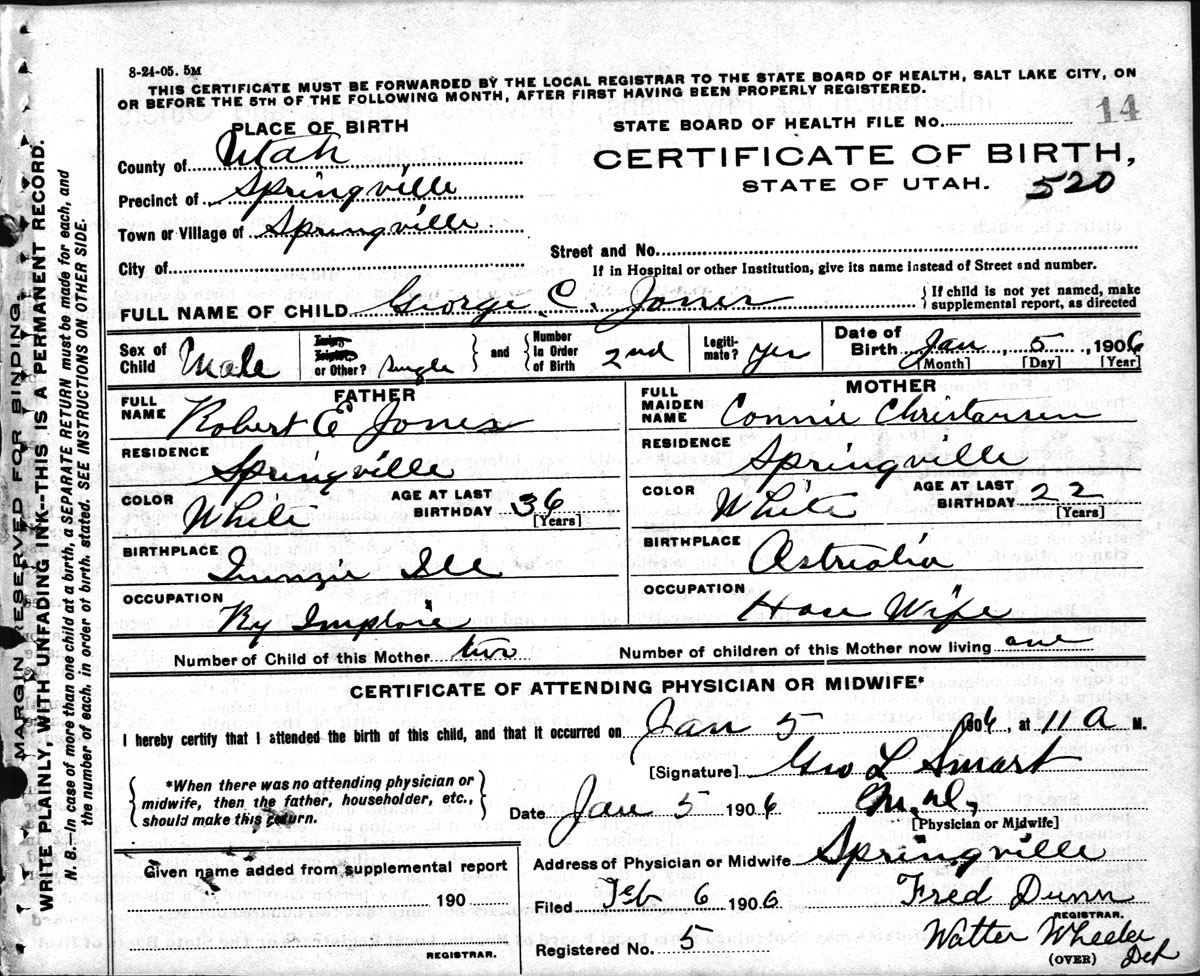 8-24-05. 5M
THIS CERTIFICATE MUST BE FORWARDED BY THE LOCAL REGISTRAR TO THE STATE BOARD OF HEALTH, SALT LAKE CITY, ON
OR BEFORE THE 5TH OF THE FOLLOWING MONTH, AFTER FIRST HAVING BEEN PROPERLY REGISTERED.
14
PLACE OF BIRTH
STATE BOARD OF HEALTH FILE No.
County of Utah
CERTIFICATE OF BIRTH,
STATE OF UTAH. 520
Precinct of Springville
Town or Village of Springville
Street and No.
City of
If in Hospital or other Institution, give its name instead of Street and number.
FULL NAME OF CHILD George C. Jones
{ If child is not yet named, make
supplemental report, as directed
Sex of Child Male
or Other? Single
and Number in Order of Birth 2nd
Legiti-mate? Yes
Date of Birth Jan, 5, 1906
[Month] [Day] [Year]
FATHER
FULL NAME Robert E Jones
RESIDENCE Springville
COLOR White AGE AT LAST BIRTHDAY 36 [Years]
BIRTHPLACE Ill
OCCUPATION Ry Imploie
MOTHER
FULL MAIDEN NAME Connie Christansen
RESIDENCE Springville
COLOR White AGE AT LAST BIRTHDAY 22 [Years]
BIRTHPLACE Astrealia
OCCUPATION Hose Wife
Number of Child of this Mother two Number of children of this Mother now living one
CERTIFICATE OF ATTENDING PHYSICIAN OR MIDWIFE*
I hereby certify that I attended the birth of this child, and that it occurred on Jan 5 1906, at 11 a M.
*When there was no attending physician or
midwife, then the father, householder, etc.,
should make this return.
[Signature] Geo L Smart
Date Jan 5 1906 M.D.,
[Physician or Midwife]
Given name added from supplemental report
190
REGISTRAR.
Address of Physician or Midwife Springville
Filed Feb 6 1906 Fred Dunn
REGISTRAR.
Registered No. 5 Walter Wheeler
(OVER) Dep
MARGIN RESERVED FOR BINDING.
WRITE PLAINLY, WITH UNFADING INK--THIS IS A PERMANENT RECORD.
N. B.—In case of more than one child at a birth, a SEPARATE RETURN must be made for each, and
the number of each, in order of birth, stated. SEE INSTRUCTIONS ON OTHER SIDE.